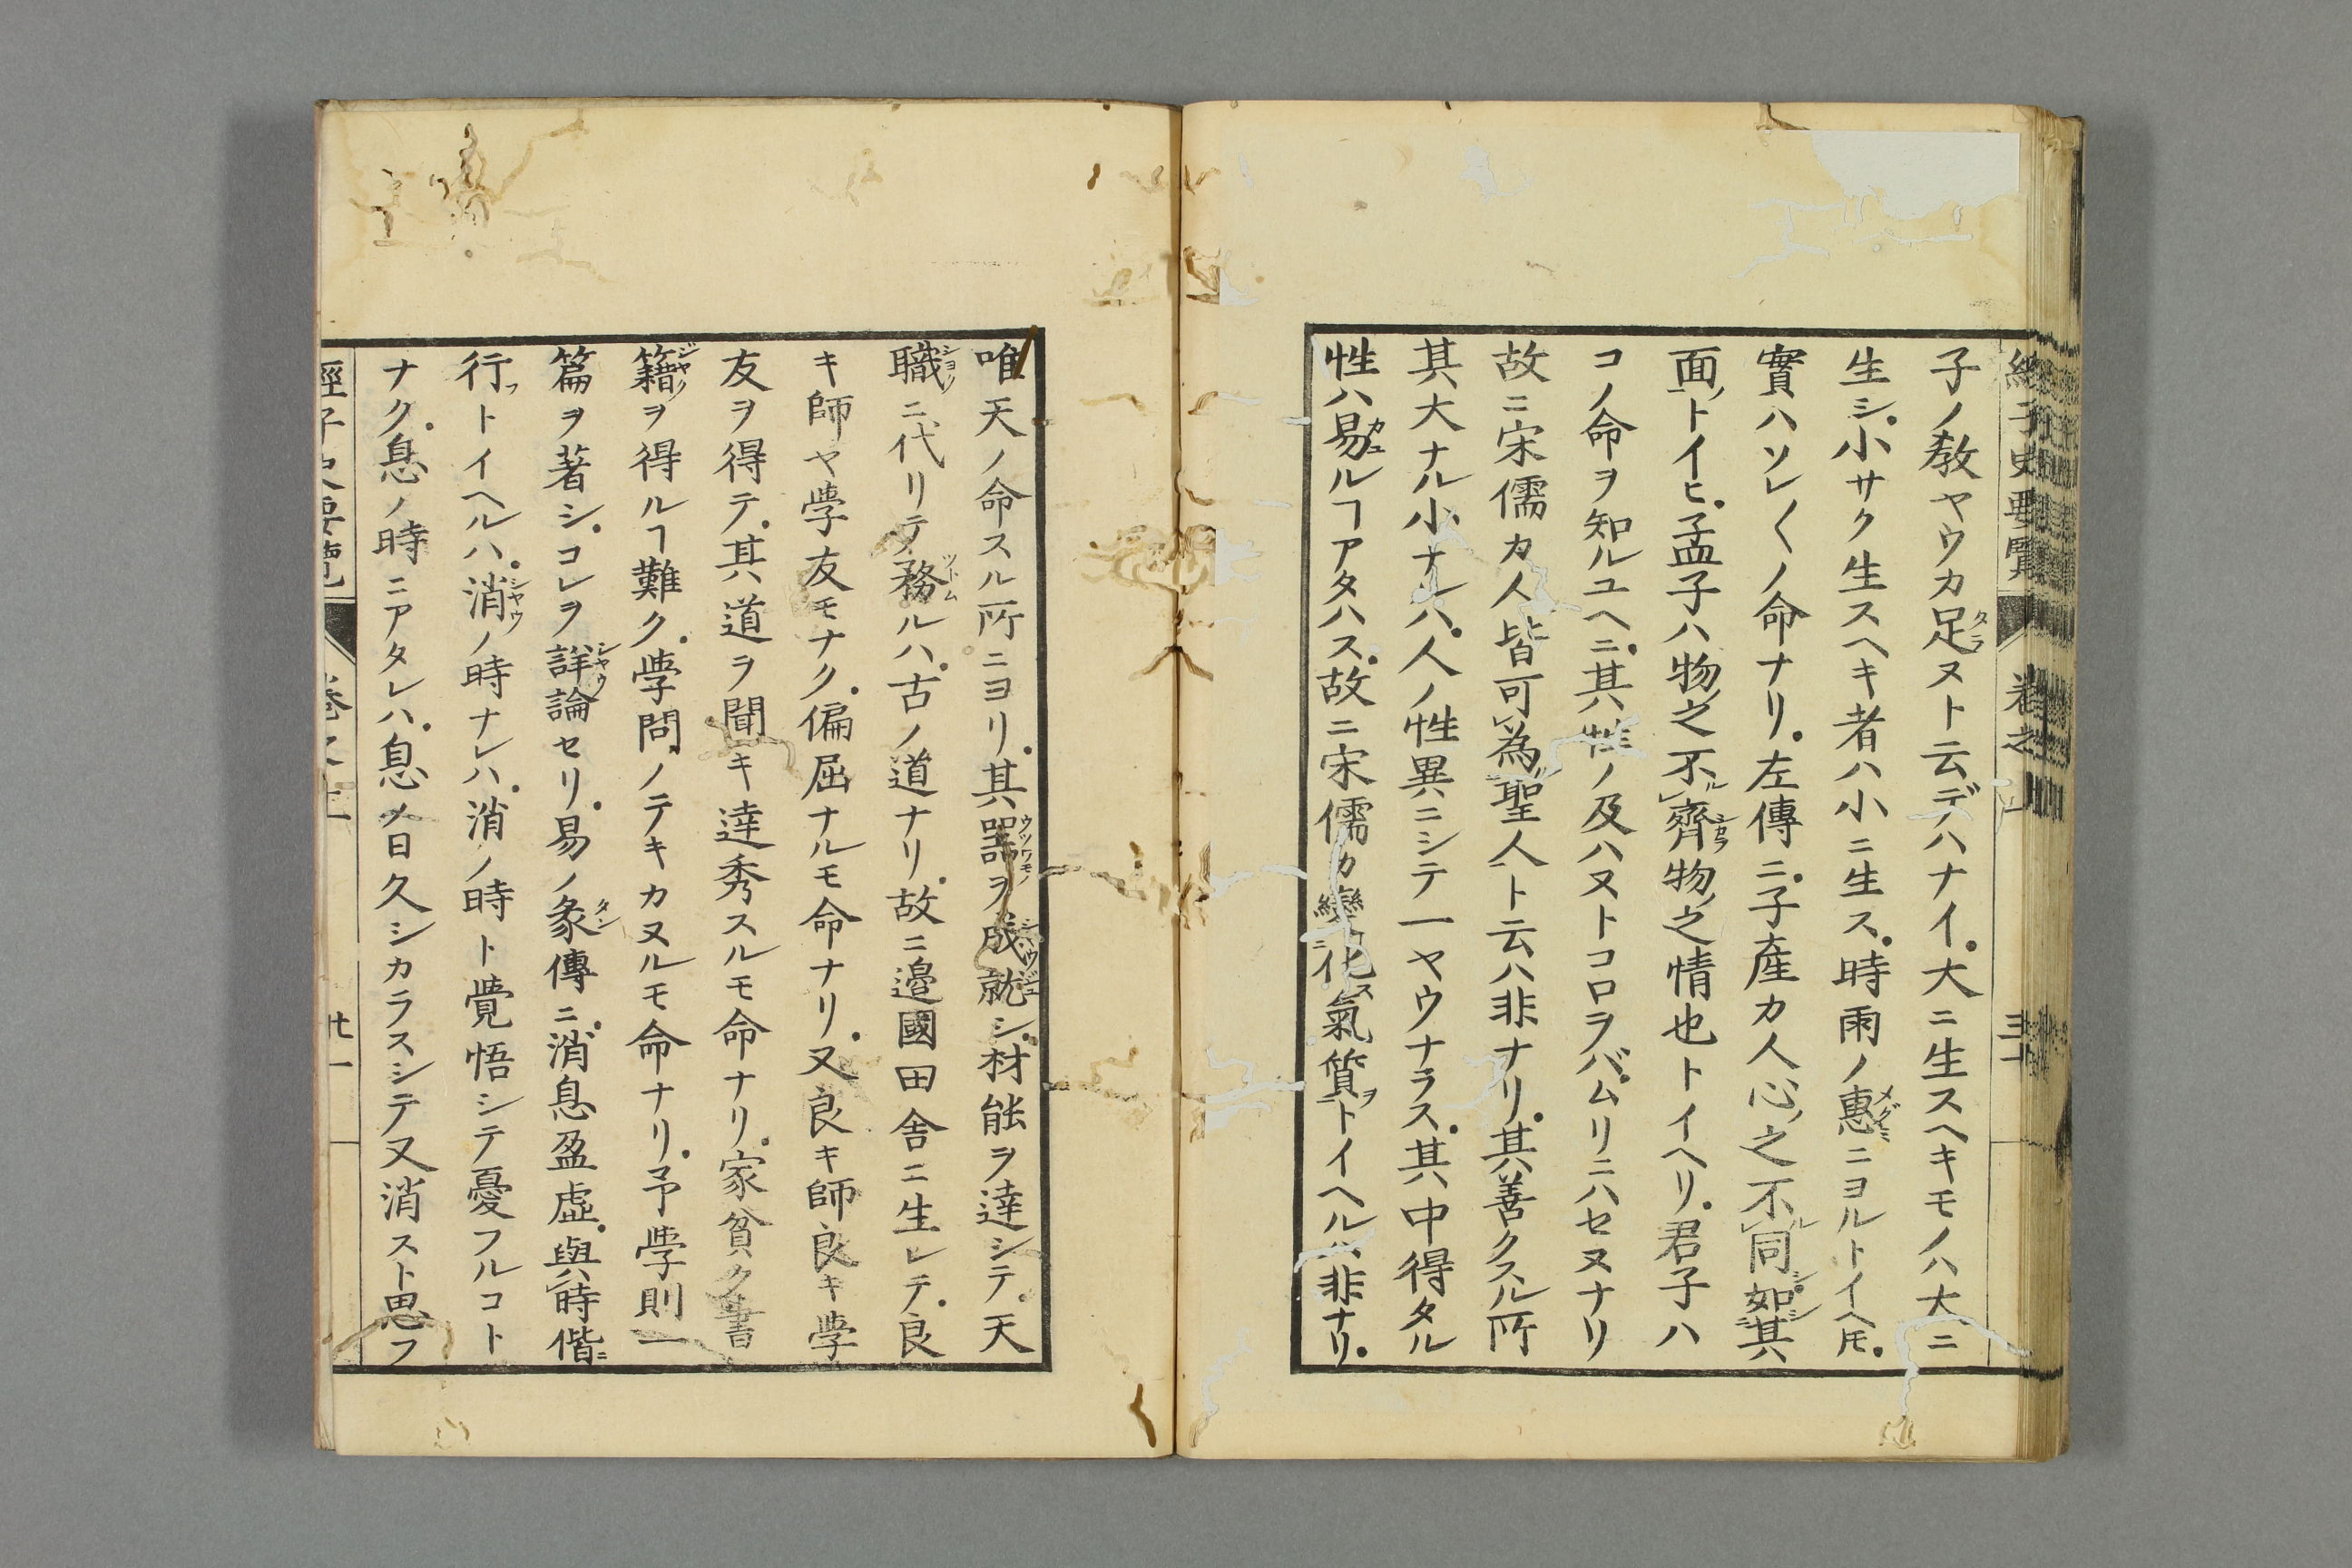 經子史要覽 卷之上
子ノ教ヤウカ足ヌト云デハナイ。大ニ生スヘキモノハ大ニ
生シ。小サク生スヘキ者ハ小ニ生ス。時雨ノ惠ニヨルトイヘ𪜈。
實ハソレ〱ノ命ナリ。左傳ニ。子產カ人心ノ之不ル同シ如シ其
面ノトイヒ。孟子ハ物ノ之不ル齊カラ物ノ之情也トイヘリ。君子ハ
コノ命ヲ知ルユヘニ。其性ノ及ハヌトコロヲバ。ムリニハセヌナリ
故ニ宋儒カ人皆可為聖人ト云ハ非ナリ。其善クスル所
其大ナル小ナルハ。人ノ性異ニシテ一ヤウナラス。其中得タル
性ハ易ルヿアタハス。故ニ宋儒カ變化ス氣質ヲトイヘルハ非ナリ。
唯天ノ命スル所ニヨリ。其器ヲ成就シ。材能ヲ達シテ。天
職ニ代リテ務ルハ。古ノ道ナリ。故ニ邉國田舍ニ生レテ。良
キ師ヤ學友モナク。偏屈ナルモ命ナリ。又良キ師良キ學
友ヲ得テ。其道ヲ聞キ達秀スルモ命ナリ。家貧ク書
籍ヲ得ルヿ難ク。學問ノテキカヌルモ命ナリ。予學則一
篇ヲ著シ。コレヲ詳論セリ。易ノ彖傳ニ。消息盈虛。與時偕ニ
行フトイヘルハ。消ノ時ナレハ。消ノ時ト覺悟シテ憂フルコト
ナク。息ノ時ニアタレハ。息メ日久シカラスシテ又消スト思フ
經子史要覽 卷之上 廿一